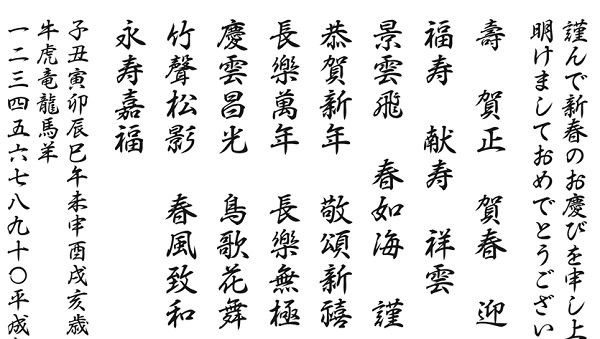 謹んで新春のお慶びを申し上
明けましておめでとうござい
壽　賀正　賀春　迎
福寿　献寿　祥雲
景雲飛　春如海　謹
恭賀新年　敬頌新禧
長樂萬年　長樂無極
慶雲昌光　鳥歌花舞
竹聲松影　春風致和
永寿嘉福
子丑寅卯辰巳午未申酉戌亥歳
牛虎竜龍馬羊
一二三四五六七八九十〇平成